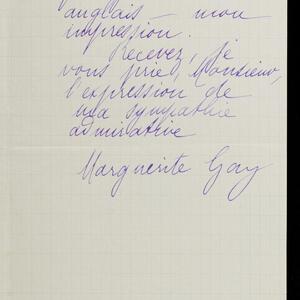 anglais — mon
impression.
Recevez, je
vous prie, Monsieur,
l'expression de
ma sympathie
admirative
Marguerite Gay